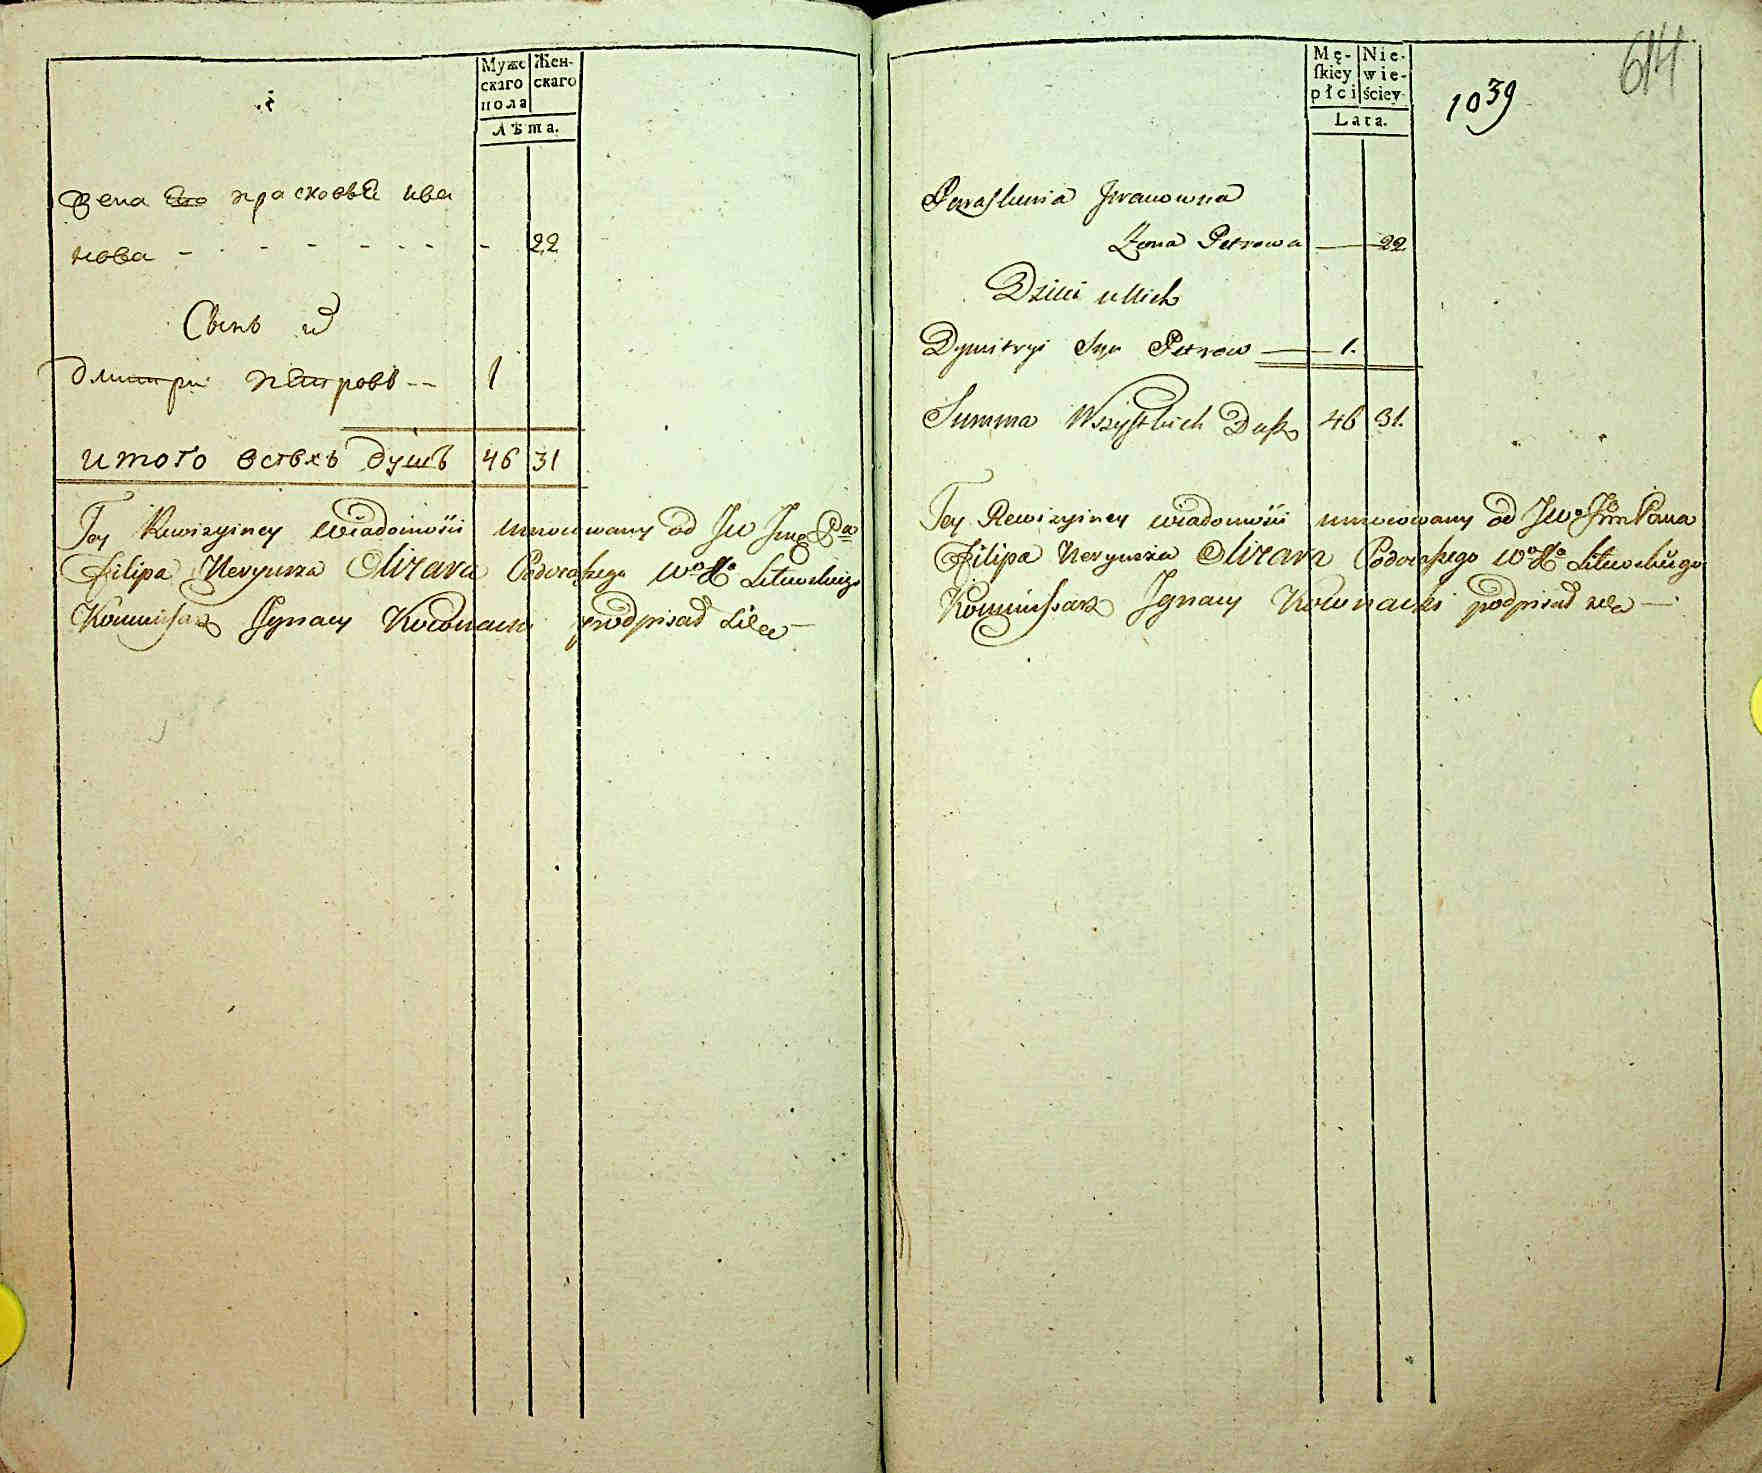 Муже
скаго
пола
Жен-
скаго
Лѣта.
жена его прасковья ива
нова - - - - - - - - 22
Сынъ и
дмитри петровъ -- 1
итого всѣхъ душъ 46 31
Tey Rewizyiney wiadomości umocowany od JW Jmc Pa
Filipa Nereusza Olizara Podczaszego Wo Xa Litewskiego
Kommissarz Ignacy podpisał się
Mę-
skiey
płci
Nie-
wie-
ściey
Lata.
1039
614
Paraskiewia Iwanowna
Żona Petrowa — 22
Dzieci u Nich
Dymitryi Syn Petrow — 1.
Summa Wszystkich Dusz 46 31.
Tey Rewizyiney wiadomości umocowany od JWo Jm Pana
Filipa Nereusza Olizara Podczaszego Wo Xa Litewskiego
Kommissarz Ignacy podpisał się —